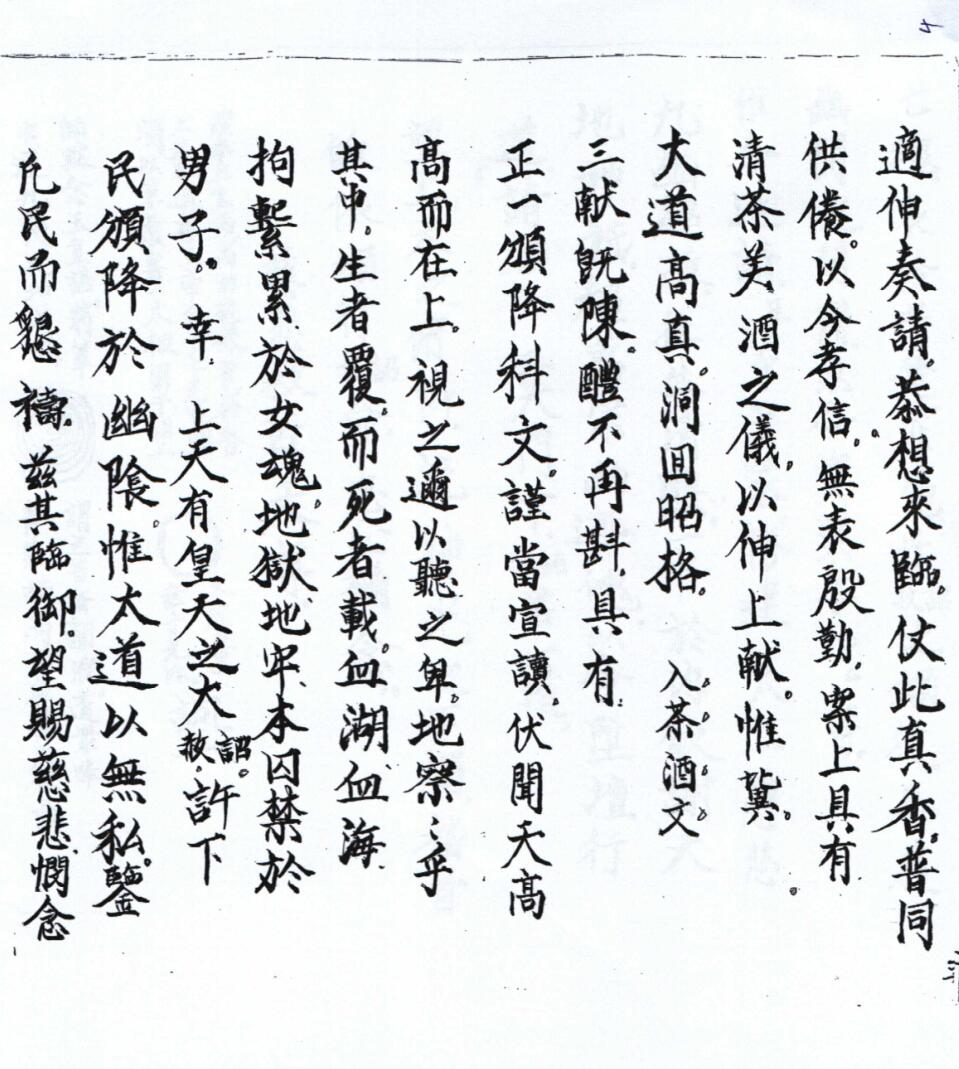 4
適伸奏請。恭想來臨。仗此真香。普同
供養。以今孝信。無表殷勤。案上具有
清茶美酒之儀。以伸上献。惟兾。
大道高真。洞囬昭格。入茶酒文。
三献既陳。醴不再斟。具有
正一頒降科文。謹當宣讀。伏聞天高
高而在上。視之邇以聽之卑。地察〻乎
其中。生者覆。而死者載。血湖血海
拘繫累於女魂。地獄地牢本囚禁於
男子。幸 上天有皇天之大詔赦。許下
民頒降於幽隂。惟大道以無私。鑒
凢民而懇禱。茲其臨御。望賜慈悲憫念